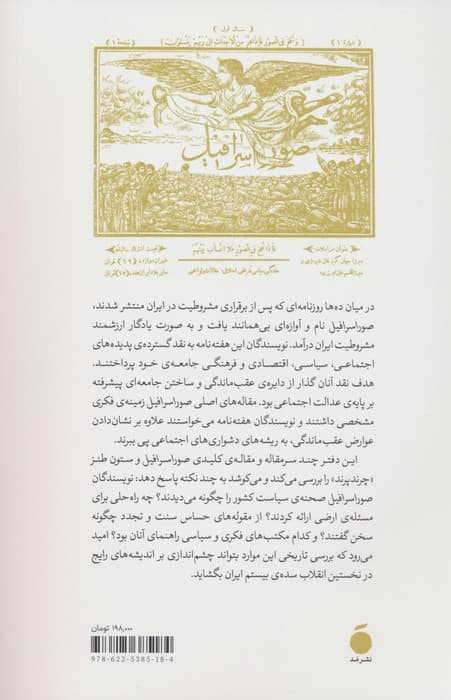 (سال اول)
(نمره ۱) (و نفخ فی الصور فاذاهم من الاجداث الی ربهم ینسلون) (صفحهٔ ۱)
صور اسرافیل
فاذا نفخ فی الصور فلا انساب بینهم
عنوان مراسلات
میرزا جهانگیر خان شیرازی و
میرزا قاسم خان تبریزی
قیمت اشتراک سالیانه
طهران دوازده (۱۲) قران
سایر بلاد ایران هفده (۱۷) قران
هفتگی سیاسی تاریخی اخلاقی
در میان ده‌ها روزنامه‌ای که پس از برقراری مشروطیت در ایران منتشر شدند،
صوراسرافیل نام و آوازه‌ای بی‌همانند یافت و به صورت یادگار ارزشمند
مشروطیت ایران درآمد. نویسندگان این هفته‌نامه به نقد گسترده‌ی پدیده‌های
اجتماعی، سیاسی، اقتصادی و فرهنگی جامعه‌ی خود پرداختند.
هدف نقد آنان گذار از دایره‌ی عقب‌ماندگی و ساختن جامعه‌ای پیشرفته
بر پایه‌ی عدالت اجتماعی بود. مقاله‌های اصلی صوراسرافیل زمینه‌ی فکری
مشخصی داشتند و نویسندگان هفته‌نامه می‌خواستند علاوه بر نشان‌دادن
عوارض عقب‌ماندگی، به ریشه‌های دشواری‌های اجتماعی پی ببرند.
این دفتر چند سرمقاله و مقاله‌ی کلیدی صوراسرافیل و ستون طنز
«چرندپرند» را بررسی می‌کند و می‌کوشد به چند نکته پاسخ دهد: نویسندگان
صوراسرافیل صحنه‌ی سیاست کشور را چگونه می‌دیدند؟ چه راه‌حلی برای
مسئله‌ی ارضی ارائه کردند؟ از مقوله‌های حساس سنت و تجدد چگونه
سخن گفتند؟ و کدام مکتب‌های فکری و سیاسی راهنمای آنان بود؟ امید
می‌رود که بررسی تاریخی این موارد بتواند چشم‌اندازی بر اندیشه‌های رایج
در نخستین انقلاب سده‌ی بیستم ایران بگشاید.
۱۹۸,۰۰۰ تومان
978-622-5385-18-4
نشر مَد